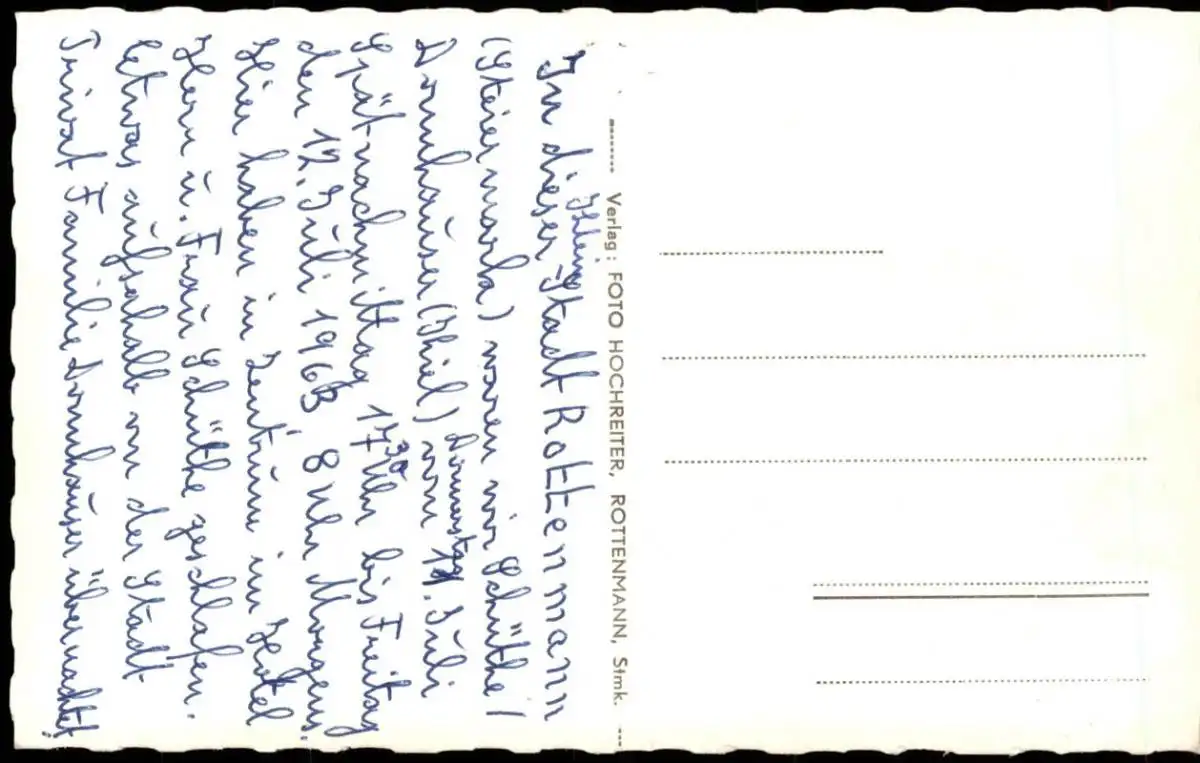 In dieser kleinen Stadt Rottenmann
(Steiermark) waren wir Schüthe /
Dornhäuser (Kiel) vom Donnerstag 11. Jüli
Spätnachmittag 17³⁰ Uhr bis Freitag
den 12. Jüli 1963 8 Uhr Morgens.
Hier haben in Zentrüm im Hotel
Herr ü. Fraü Schüthe geschlafen.
Etwas aüfserhalb von der Stadt
Privat Familie Dornhäuser übernachtet!
Verlag: FOTO HOCHREITER, ROTTENMANN, Stmk.